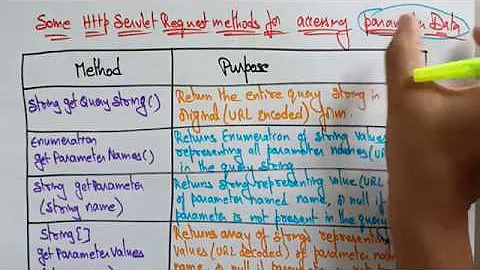 Some Http Servlet Request methods for accessing Data
Method
Purpose
String getQuery String()
Return the entire query string in
original (URL encoded) form.
Enumeration
getParameter Names()
Returns Enumeration of string values
representing all parameter names (UR
in the query string
String getParameter
(String name)
Returns string representing value (URL
of parameter named name, or null if
parameter is not present in the query
String[]
getParameter Values
Returns array of strings representing
Values (URL decoded) of parameter
name, or null if